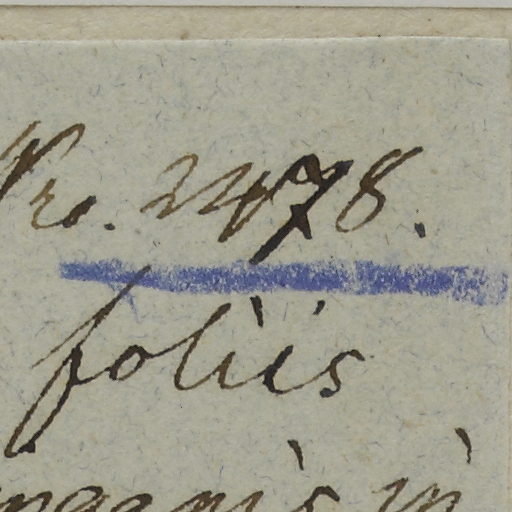 Nro. 2478.
foliis
in